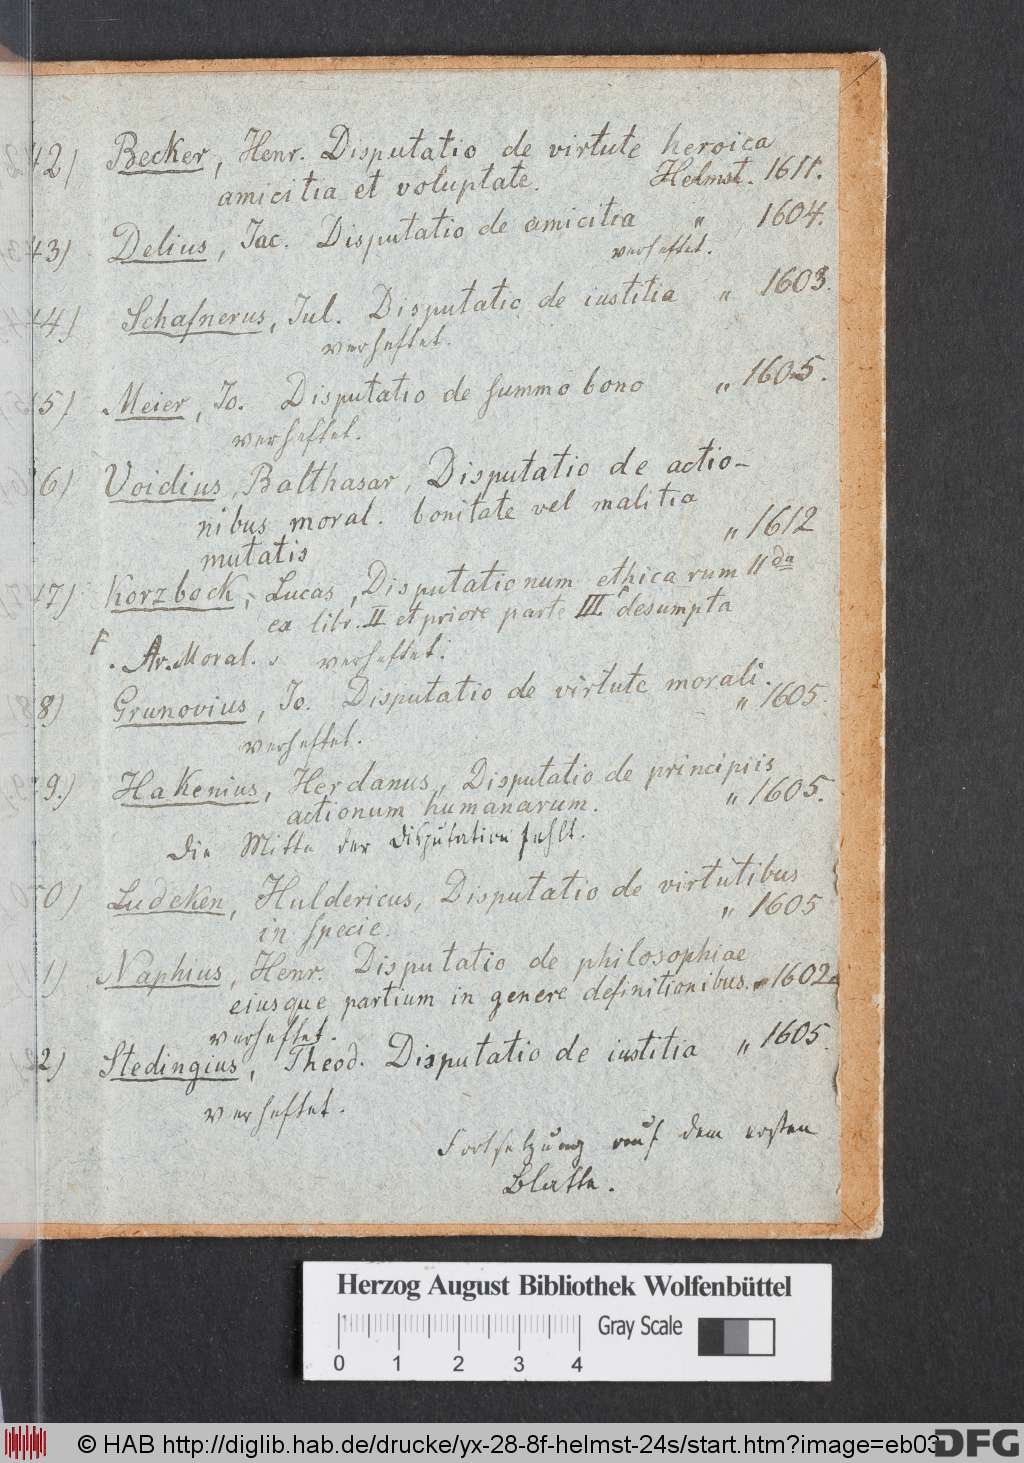 42) Becker, Henr. Disputatio de virtute heroica
amicitia et voluptate. Helmst. 1611.
43) Delius, Jac. Disputatio de amicitia " 1604.
verheftet.
44) Schafnerus, Jul. Disputatio de iustitia " 1603.
verheftet.
5) Meier, Jo. Disputatio de summo bono " 1605.
verheftet.
6) Voidius, Balthasar, Disputatio de actio-
nibus moral. bonitate vel malitia
mutatis " 1612
47) Korzbock, Lucas, Disputationum ethicarum IIda
ex libr. II et priore parte III. desumpta
Ar. Moral. verheftet.
8) Grunovius, Jo. Disputatio de virtute morali.
" 1605.
verheftet.
9.) Hakenius, Herdanus, Disputatio de principiis
actionum humanarum. " 1605.
Die Mitte der Disputation fehlt.
0) Ludeken, Huldericus, Disputatio de virtutibus
in specie. " 1605
1) Naphius, Henr. Disputatio de philosophiae
eiusque partium in genere definitionibus. " 1602
verheftet.
2) Stedingius, Theod. Disputatio de iustitia " 1605.
verheftet.
Fortsetzung auf dem ersten
Blatte.
Herzog August Bibliothek Wolfenbüttel
Gray Scale
0 1 2 3 4
© HAB http://diglib.hab.de/drucke/yx-28-8f-helmst-24s/start.htm?image=eb03
DFG